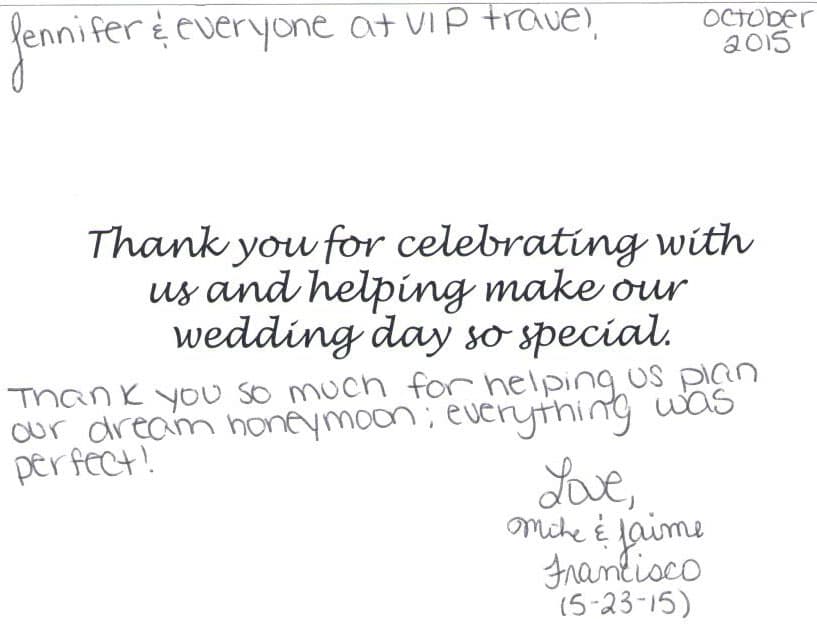 Jennifer & everyone at VIP travel,
October
2015
Thank you for celebrating with
us and helping make our
wedding day so special.
Thank you so much for helping us plan
our dream honeymoon; everything was
perfect!
Love,
Mike & Jaime
Francisco
(5-23-15)